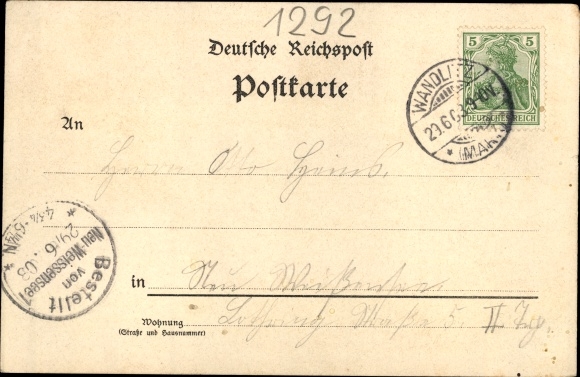 1292
Deutsche Reichspost
Postkarte
5 5
DEUTSCHES REICH
WANDLITZ
29.6.03
(MARK)
An
Herrn Otto
Bestellt
von
Neu-Weissensee
29/6.03
in Neu Weißensee
Wohnung
(Straße und Hausnummer)
Lothring Straße 5 II Tr.